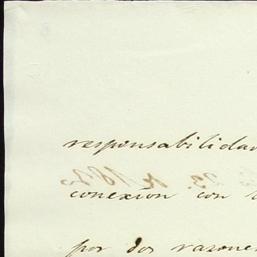 responsabilidad
conexion con
por dos razones